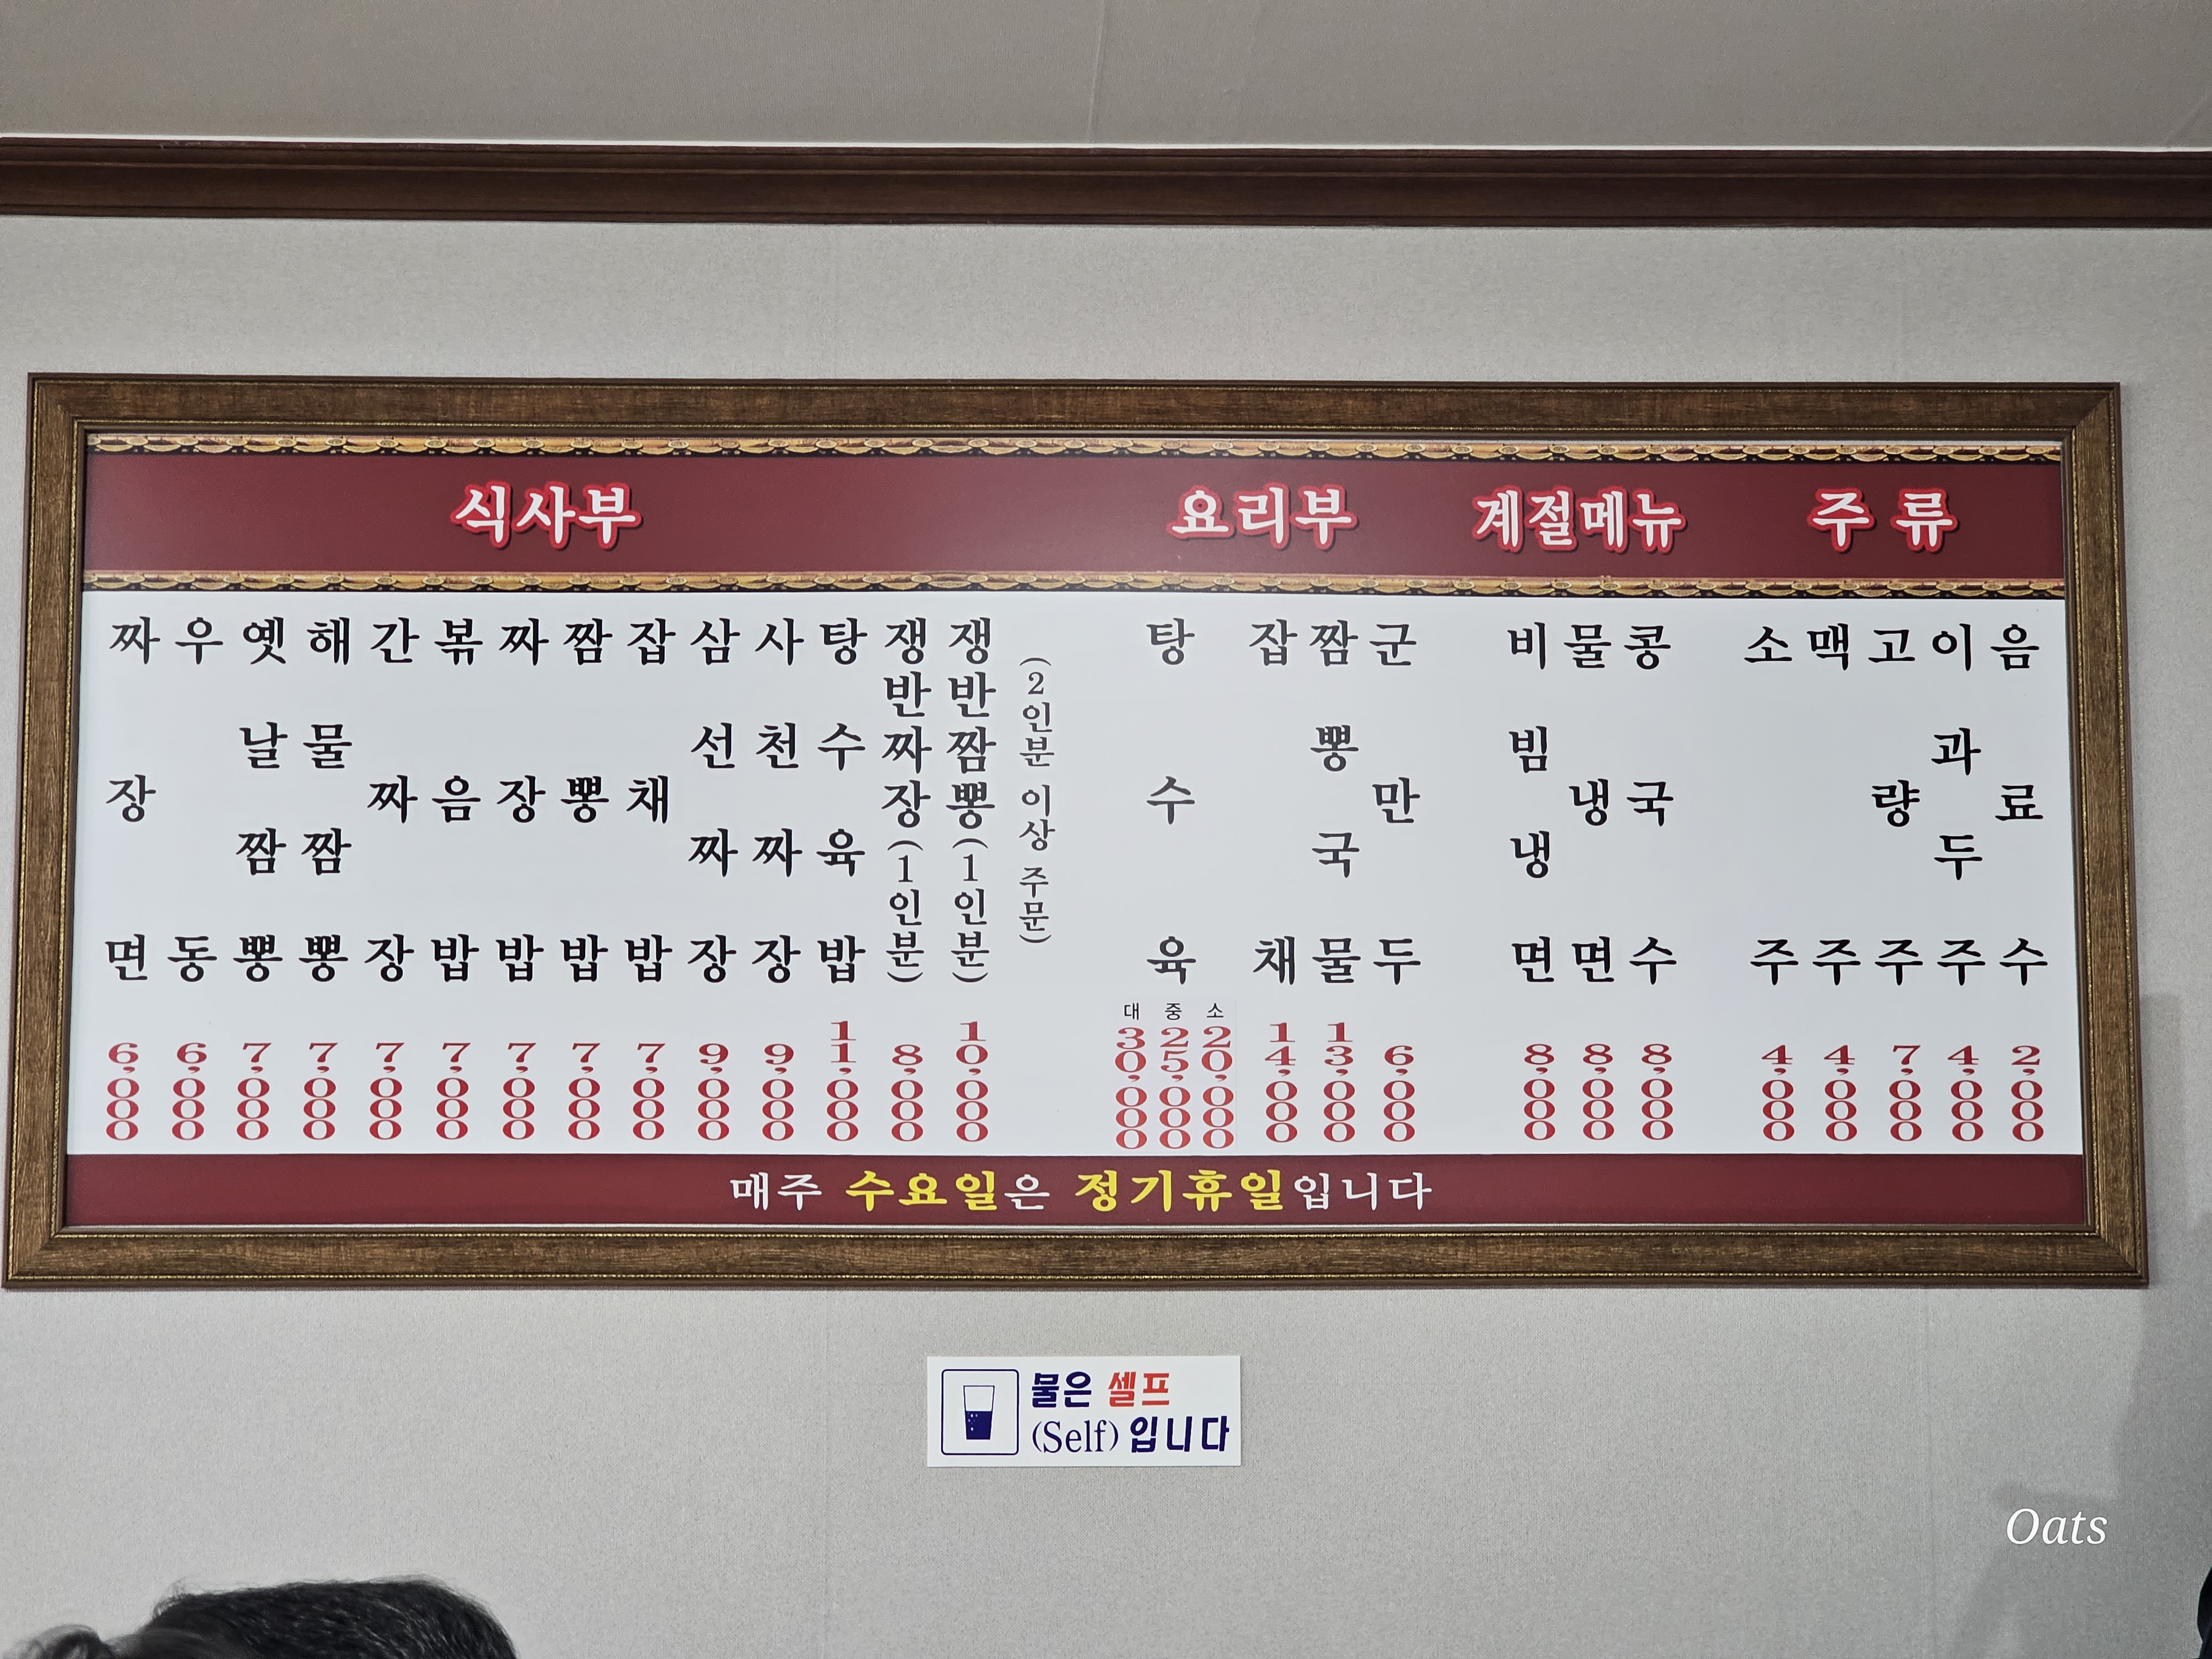 식사부
요리부
계절메뉴
주류
짜장면 6,000
우동 6,000
옛날짬뽕 7,000
해물짬뽕 7,000
간짜장 7,000
볶음밥 7,000
짜장밥 7,000
짬뽕밥 7,000
잡채밥 7,000
삼선짜장 9,000
사천짜장 9,000
탕수육밥 11,000
쟁반짜장(1인분) 8,000
쟁반짬뽕(1인분) 10,000
(2인분 이상 주문)
탕수육 대 30,000 중 25,000 소 20,000
잡채 14,000
짬뽕국물 13,000
군만두 6,000
비빔냉면 8,000
물냉면 8,000
콩국수 8,000
소주 4,000
맥주 4,000
고량주 7,000
이과두주 4,000
음료수 2,000
매주 수요일은 정기휴일입니다
물은 셀프
(Self) 입니다
Oats